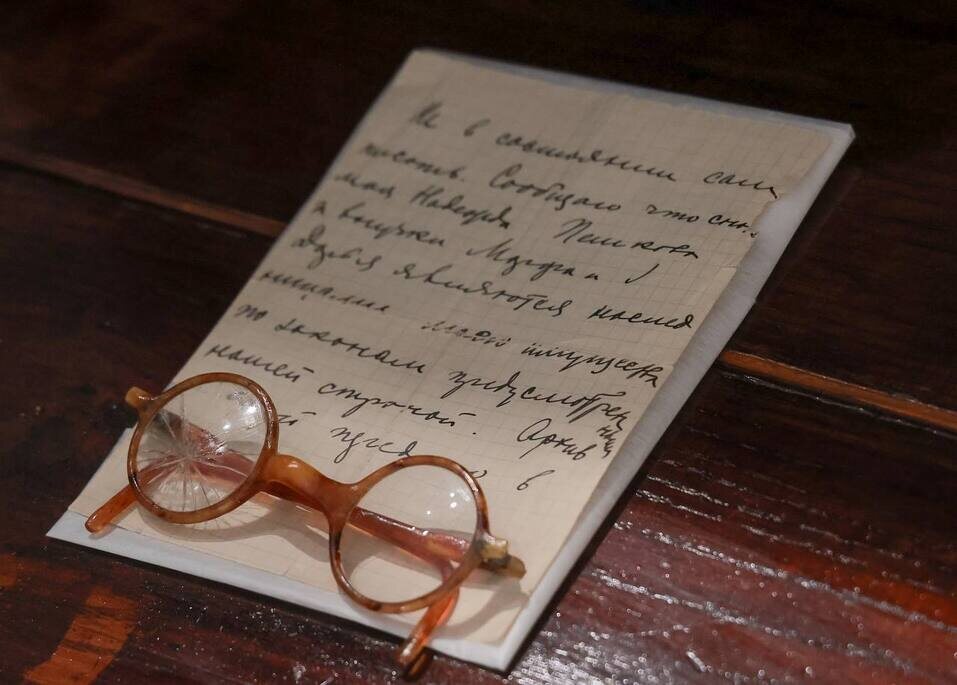 в состоянии сам
писать. Сообщаю что
моя Надежда Пешкова
и внучки Марфа и
Дарья являются наслед
ницами моего имущества
по законам предусмотрен
ным
нашей страной. Архив
в